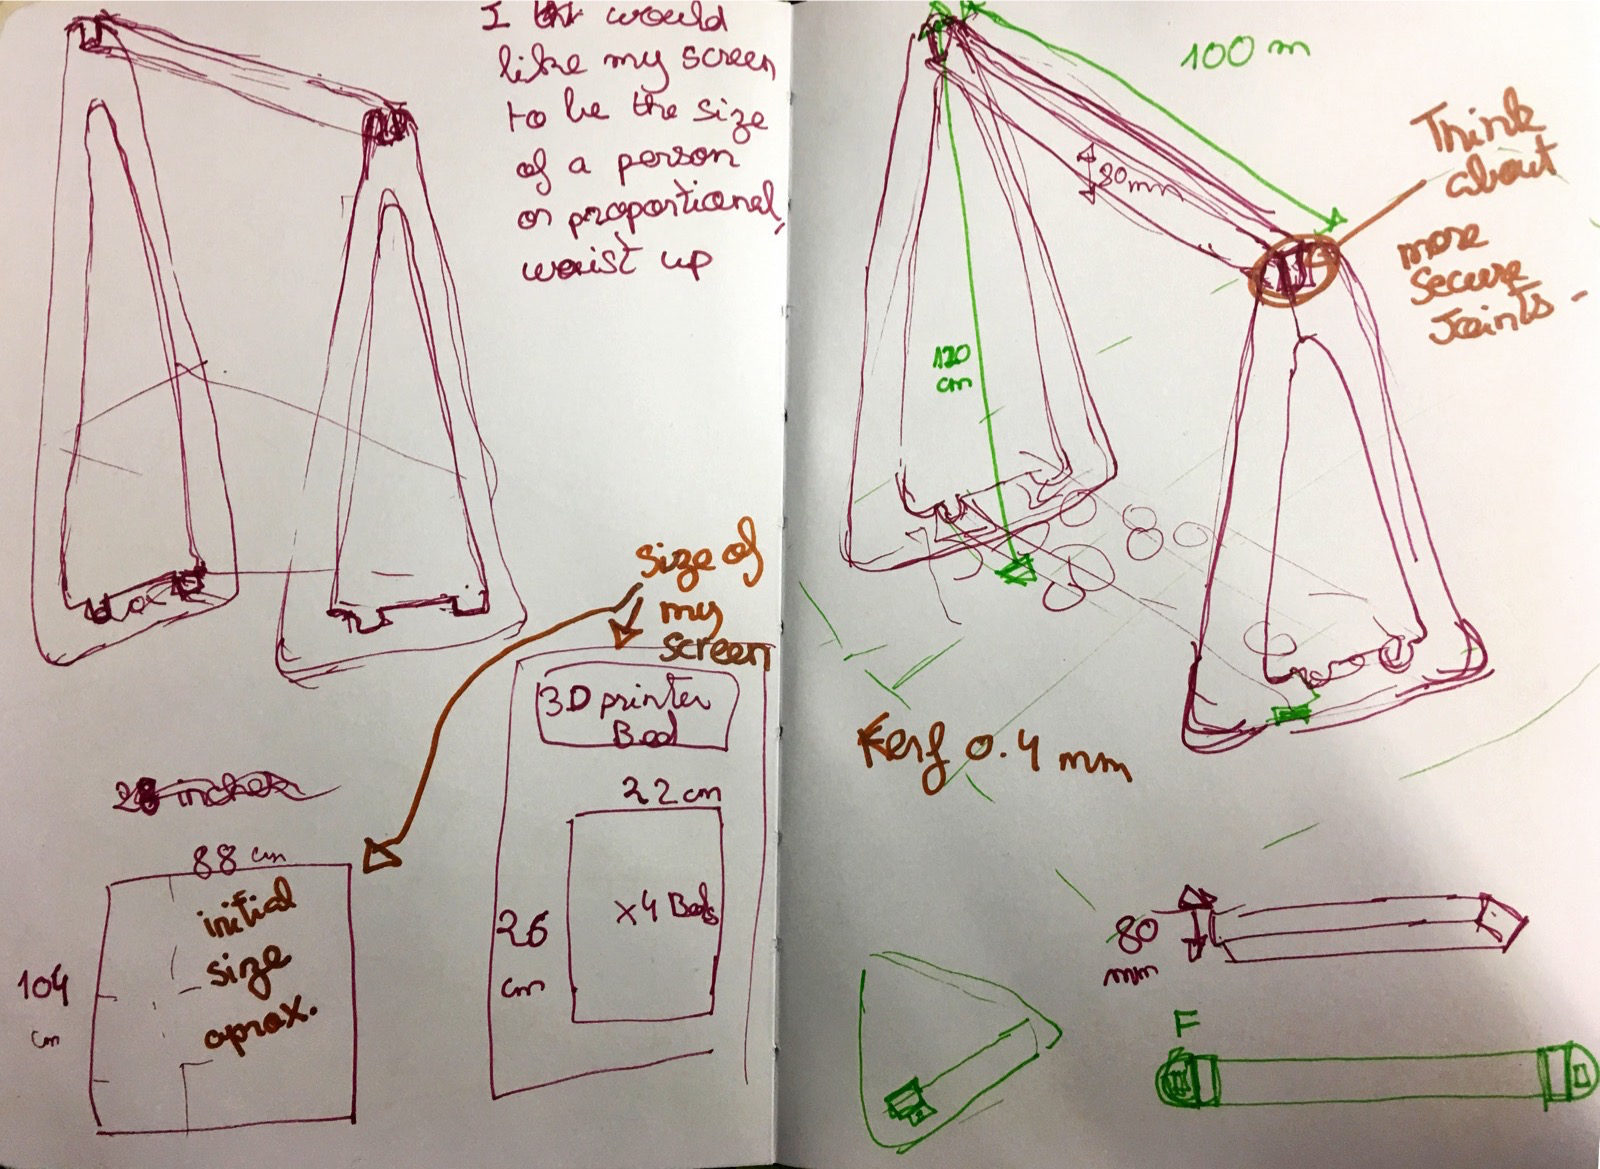 I would
like my screen
to be the size
of a person
or proportional,
waist up
size of
my
screen
3D printer
Bed
22 cm
x4 Beds
26
cm
28 inches
88 cm
initial
size
aprox.
104
cm
100 m
Think
about
more
secure
Joints -
80mm
120
cm
Kerf 0.4 mm
80
mm
F